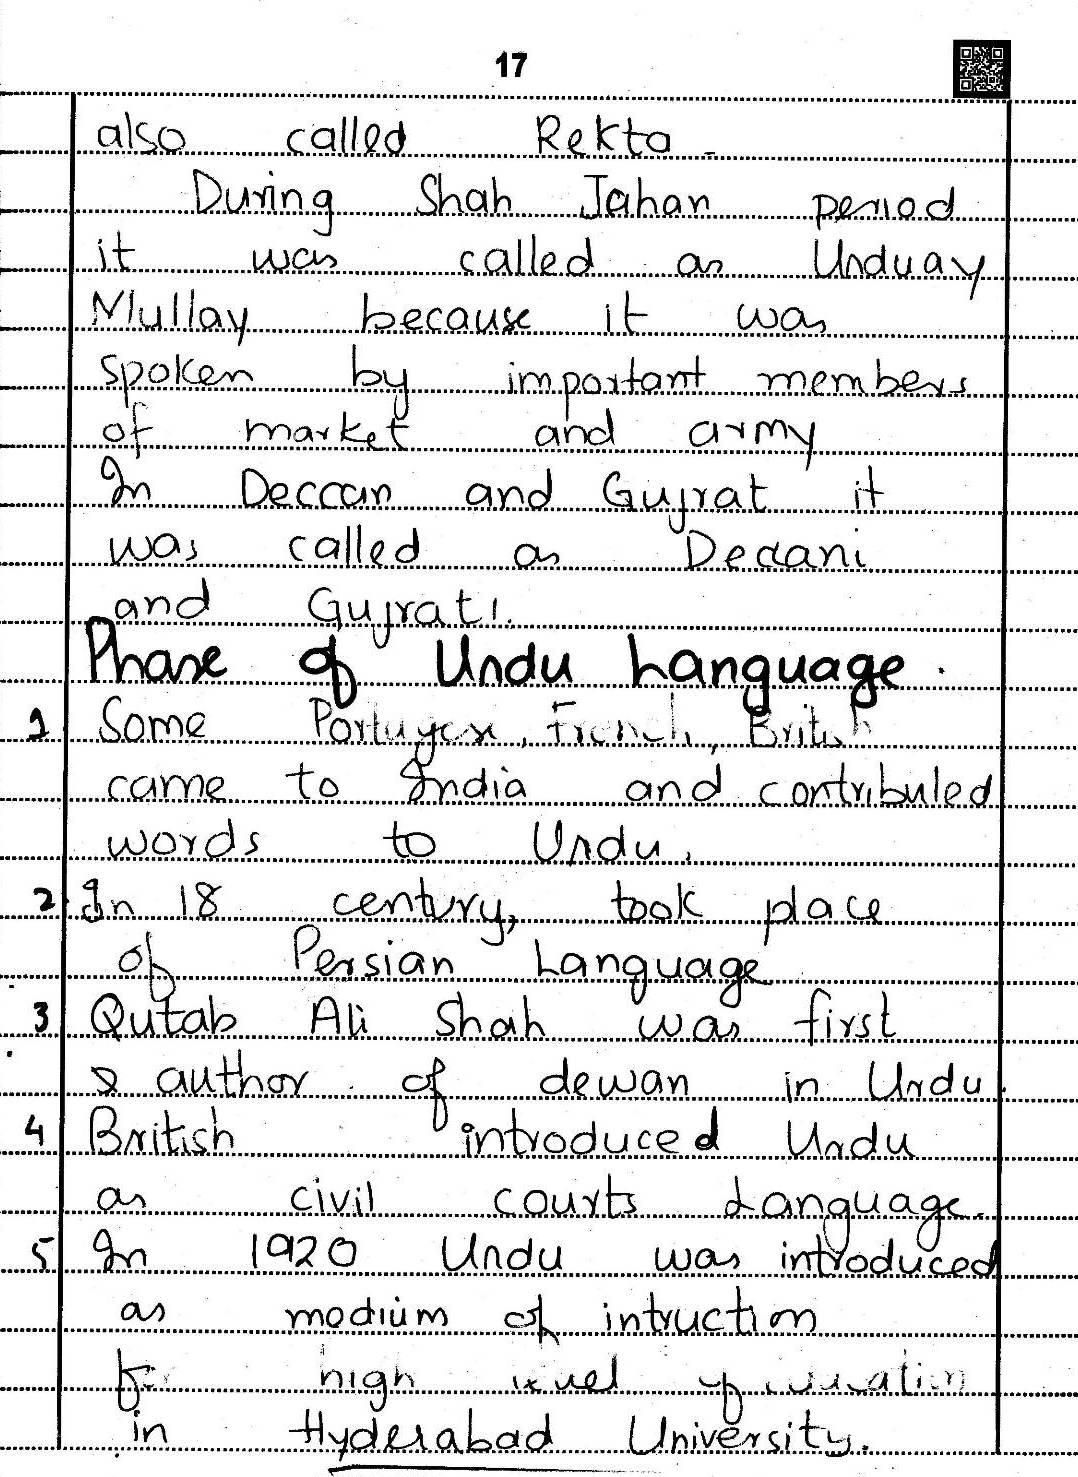 17
also called Rekta
During Shah Jahan period
it was called as Urduay
Mullay because it was
spoken by important members
of market and army
In Deccan and Gujrat it
was called as Deccani
and Gujrati.
Phase of Urdu Language.
1 Some Portugese, French, British
came to India and contributed
words to Urdu.
2. In 18 century, took place
of Persian Language
3 Qutab Ali Shah was first
author of dewan in Urdu.
4 British introduced Urdu
as civil courts Language.
5 In 1920 Urdu was introduced
as medium of intruction
for high level of
in Hyderabad University.